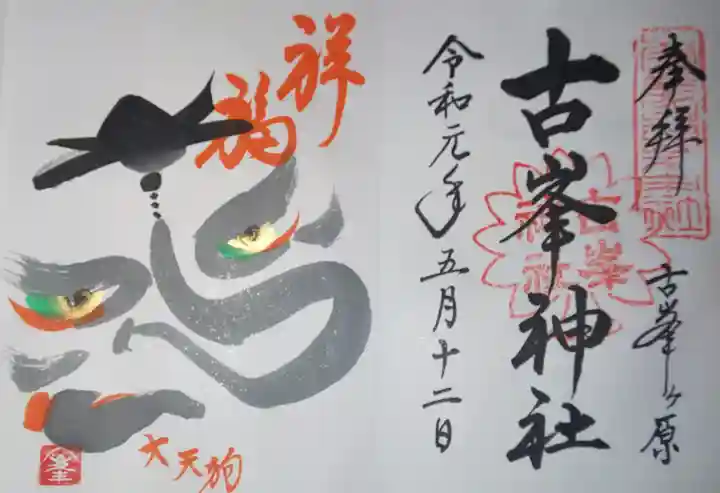 奉拝
古峯ヶ原
古峯神社
古峯神社
令和元年五月十二日
祥福
大天狗
峯